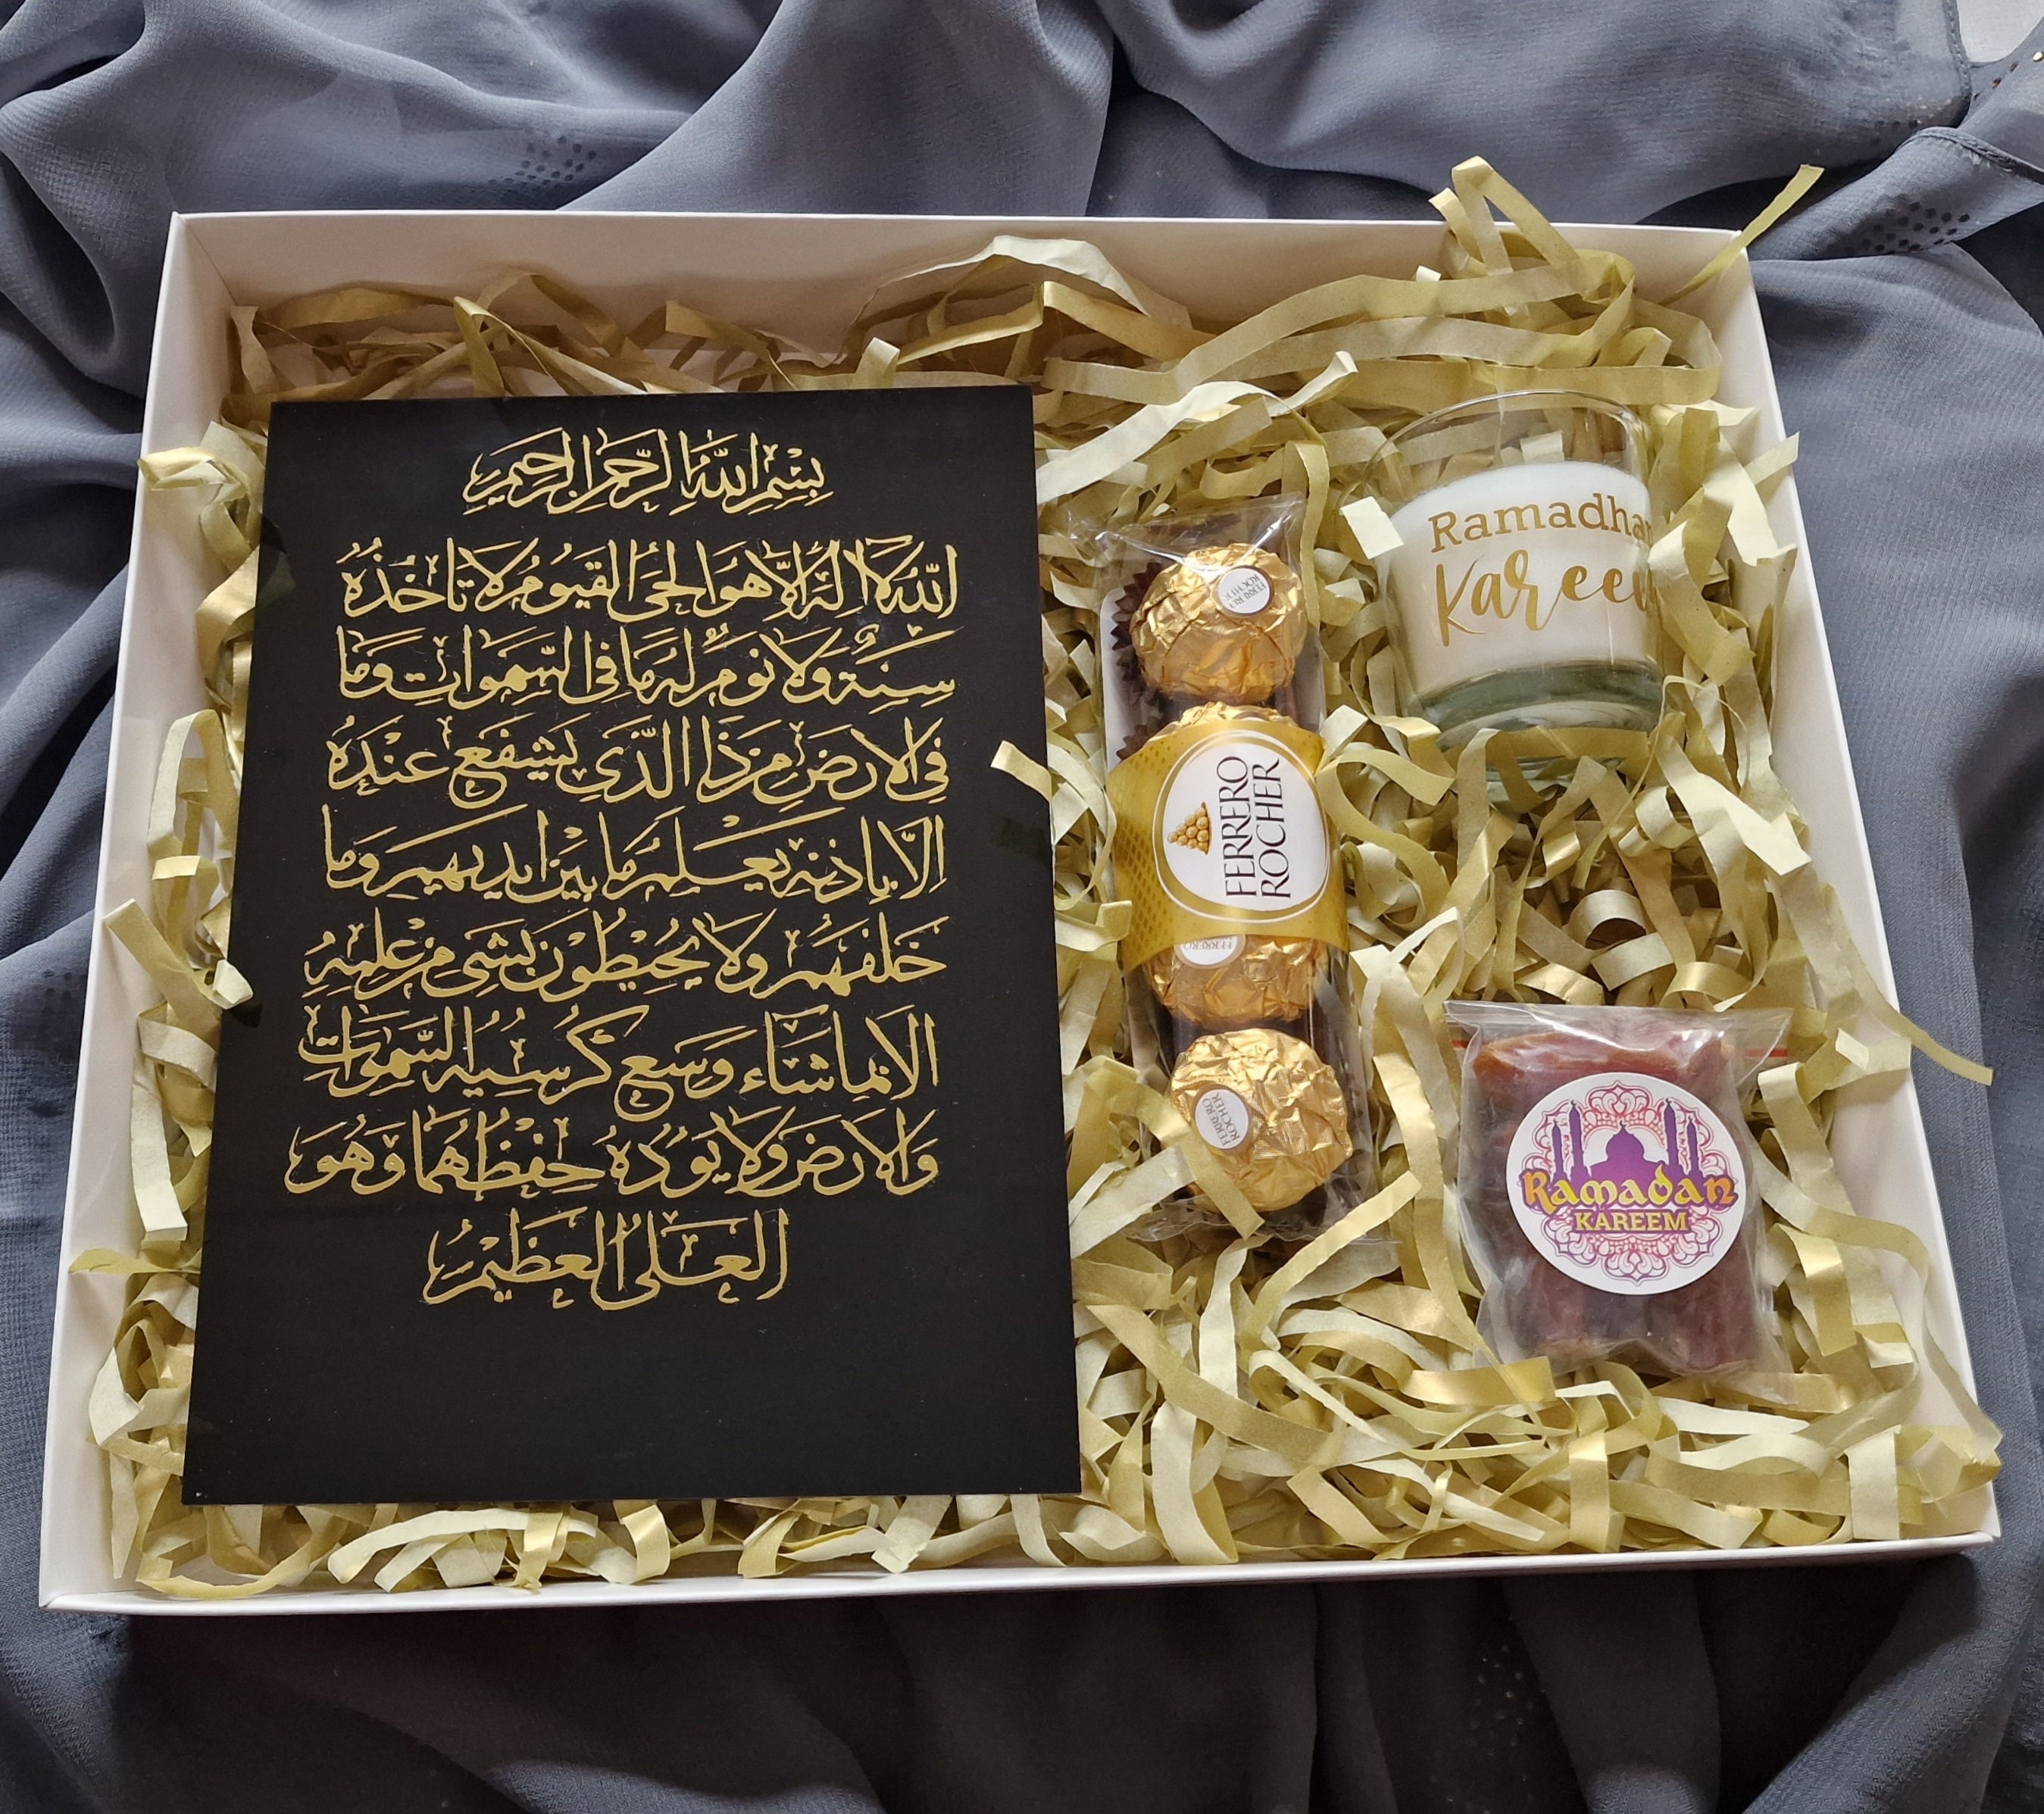 بِسْمِ اللهِ الرَّحْمنِ الرَّحِيمِ
اللهُ لَا اِلٰهَ اِلَّا هُوَ الْحَىُّ الْقَيُّومُ لَا تَأْخُذُهُ
سِنَةٌ وَلَا نَوْمٌ لَهُ مَا فِى السَّمٰوَاتِ وَمَا
فِى الْاَرْضِ مَنْ ذَا الَّذِى يَشْفَعُ عِنْدَهُ
اِلَّا بِاِذْنِهِ يَعْلَمُ مَا بَيْنَ اَيْدِيهِمْ وَمَا
خَلْفَهُمْ وَلَا يُحِيطُونَ بِشَىْءٍ مِنْ عِلْمِهِ
اِلَّا بِمَا شَاءَ وَسِعَ كُرْسِيُّهُ السَّمٰوَاتِ
وَالْاَرْضَ وَلَا يَؤُدُهُ حِفْظُهُمَا وَهُوَ
الْعَلِىُّ الْعَظِيمُ
FERRERO
ROCHER
FERRERO
ROCHER
FERRERO
FERRERO
ROCHER
Ramadhan
Kareem
Ramadan
KAREEM